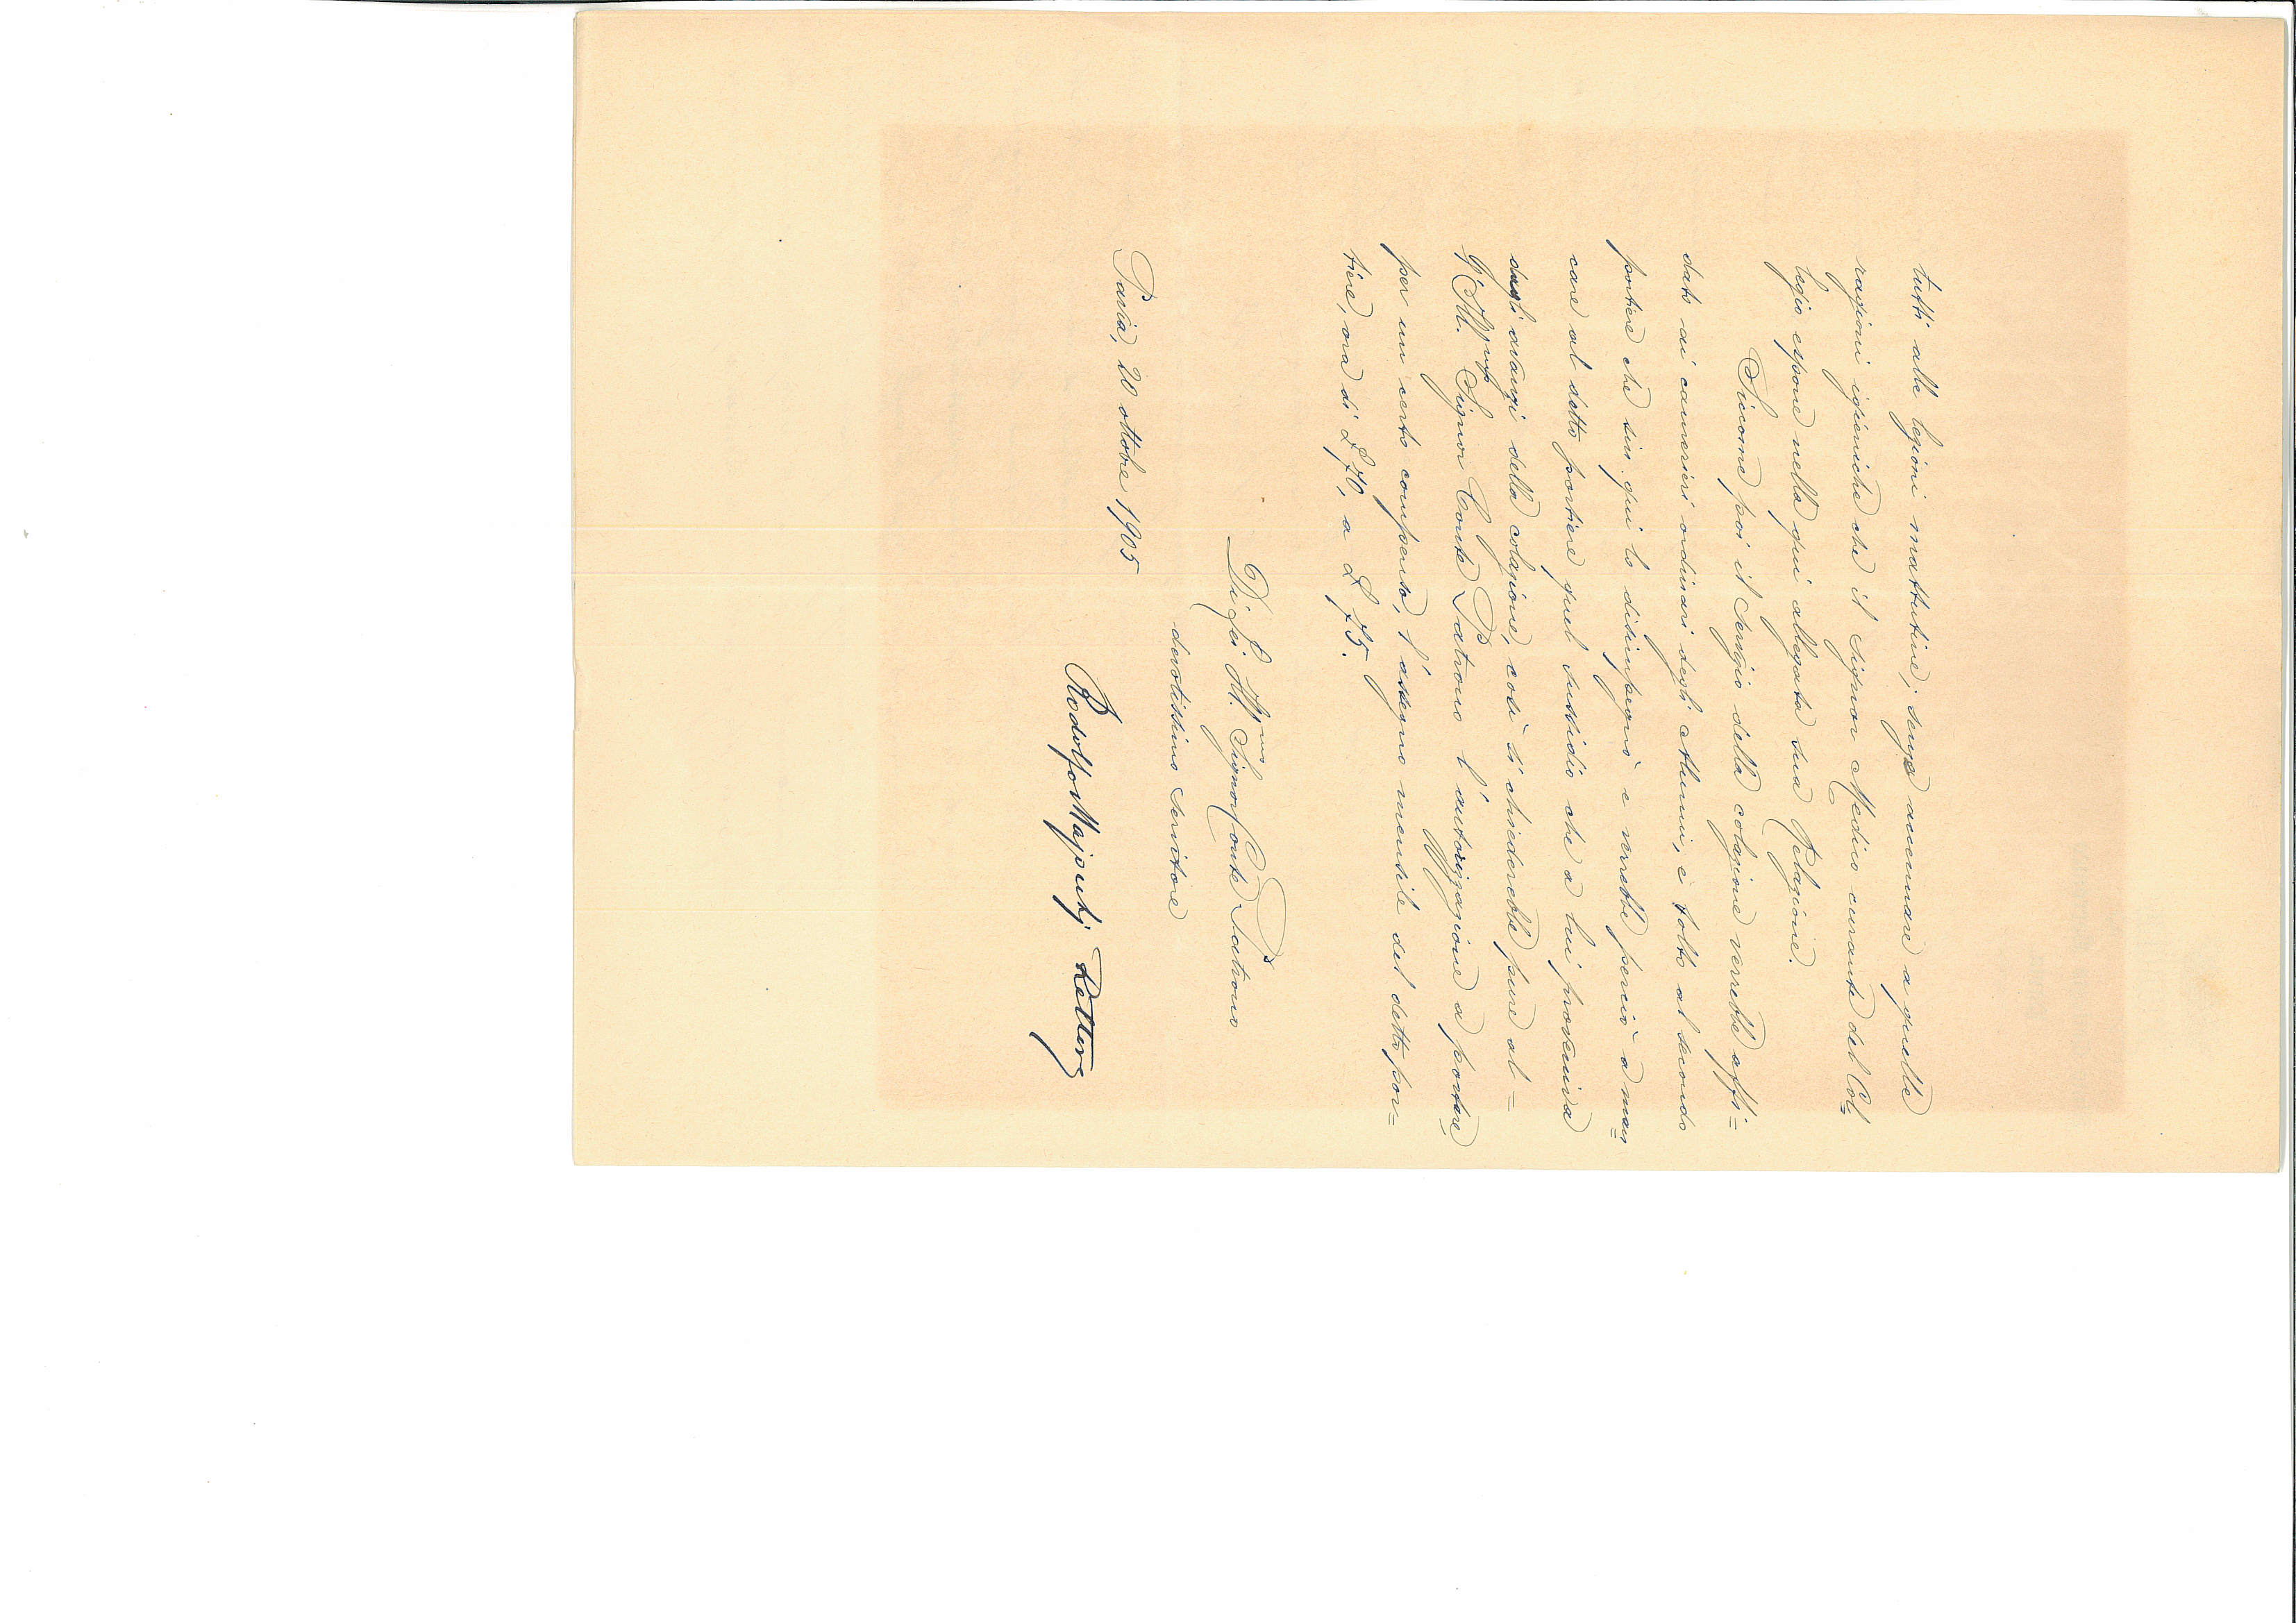 tutti alle lezioni mattutine; senza accennare a quelle
ragioni igieniche che il signor Medico curante del Col=
legio espone nella qui allegata sua Relazione.
Siccome poi il servizio della colazione verrebbe affi=
dato ai camerieri ordinari degli Alunni, e tolto al secondo
portiere che sin qui lo disimpegnò e verrebbe perciò a man=
care al detto portiere quel sussidio che a lui proveniva
dagli avanzi della colazione, così si chiederebbe pure al=
l'Ill. Signor Conte Patrono l'autorizzazione a portare,
per un certo compenso, l'assegno mensile del detto por=
tiere, ora di £ 70, a £ 75.
Di Lei Ill.mo Signor Conte Patrono
devotissimo servitore
Pavia, 20 ottobre 1905
Rodolfo Majocchi Rettore